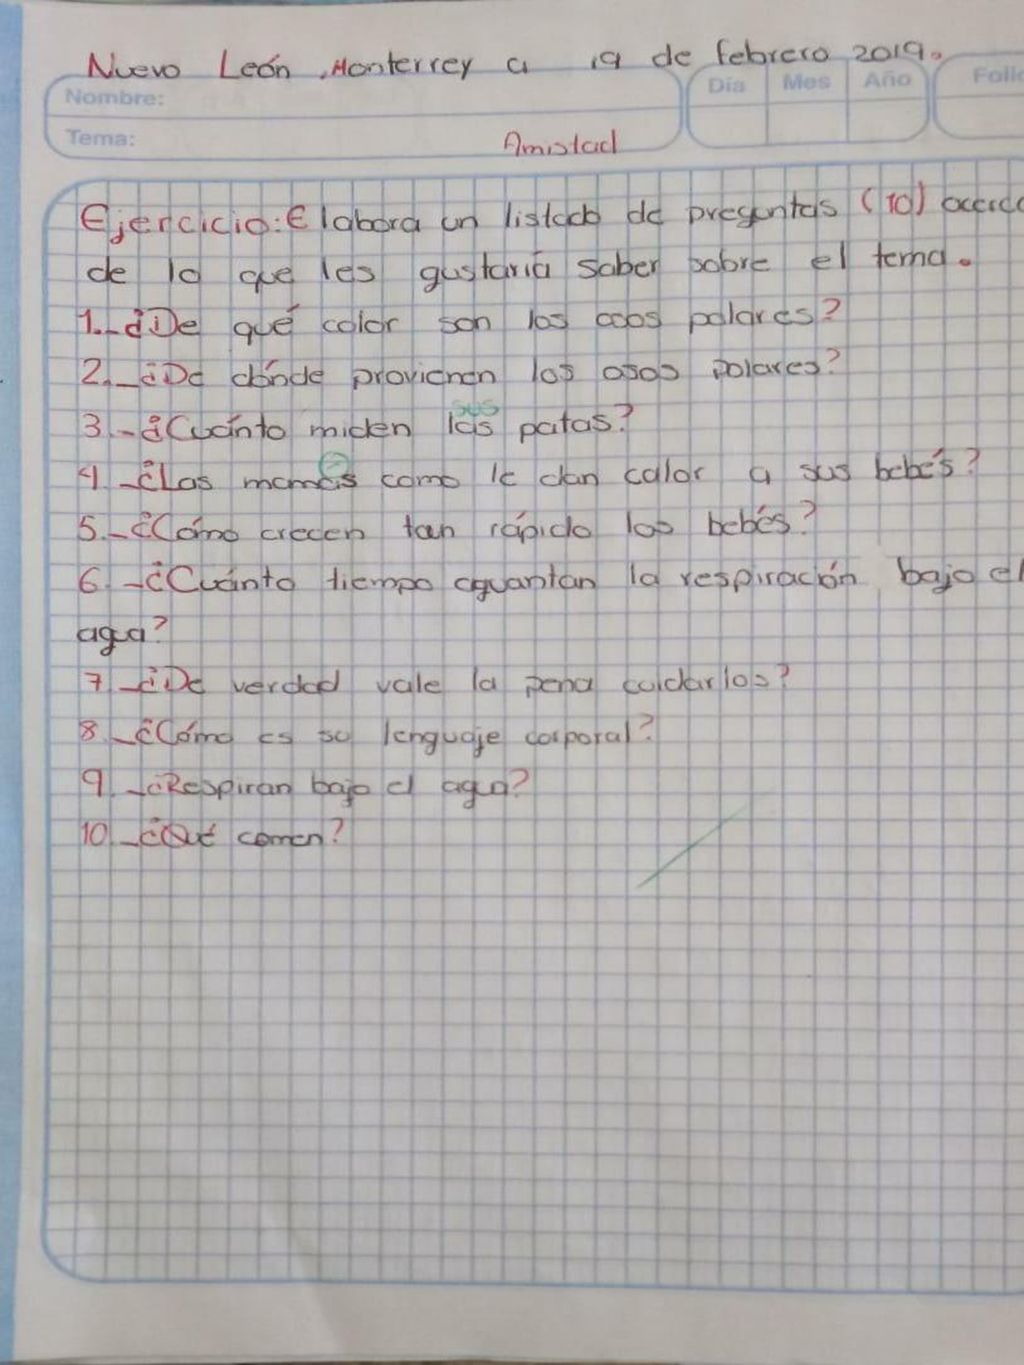 Nuevo León, Monterrey a 19 de febrero 2019.
Nombre:
Día Mes Año Folio
Tema:
Amistad
Ejercicio: Elabora un listado de preguntas (10) acerca
de lo que les gustaría saber sobre el tema.
1.-¿De qué color son los osos polares?
2.-¿De dónde provienen los osos polares?
sus
3.-¿Cuánto miden las patas?
4.-¿Las mamás como le dan calor a sus bebés?
5.-¿Cómo crecen tan rápido los bebés?
6.-¿Cuánto tiempo aguantan la respiración bajo el
agua?
7.-¿De verdad vale la pena cuidarlos?
8.-¿Cómo es su lenguaje corporal?
9.-¿Respiran bajo el agua?
10.-¿Qué comen?